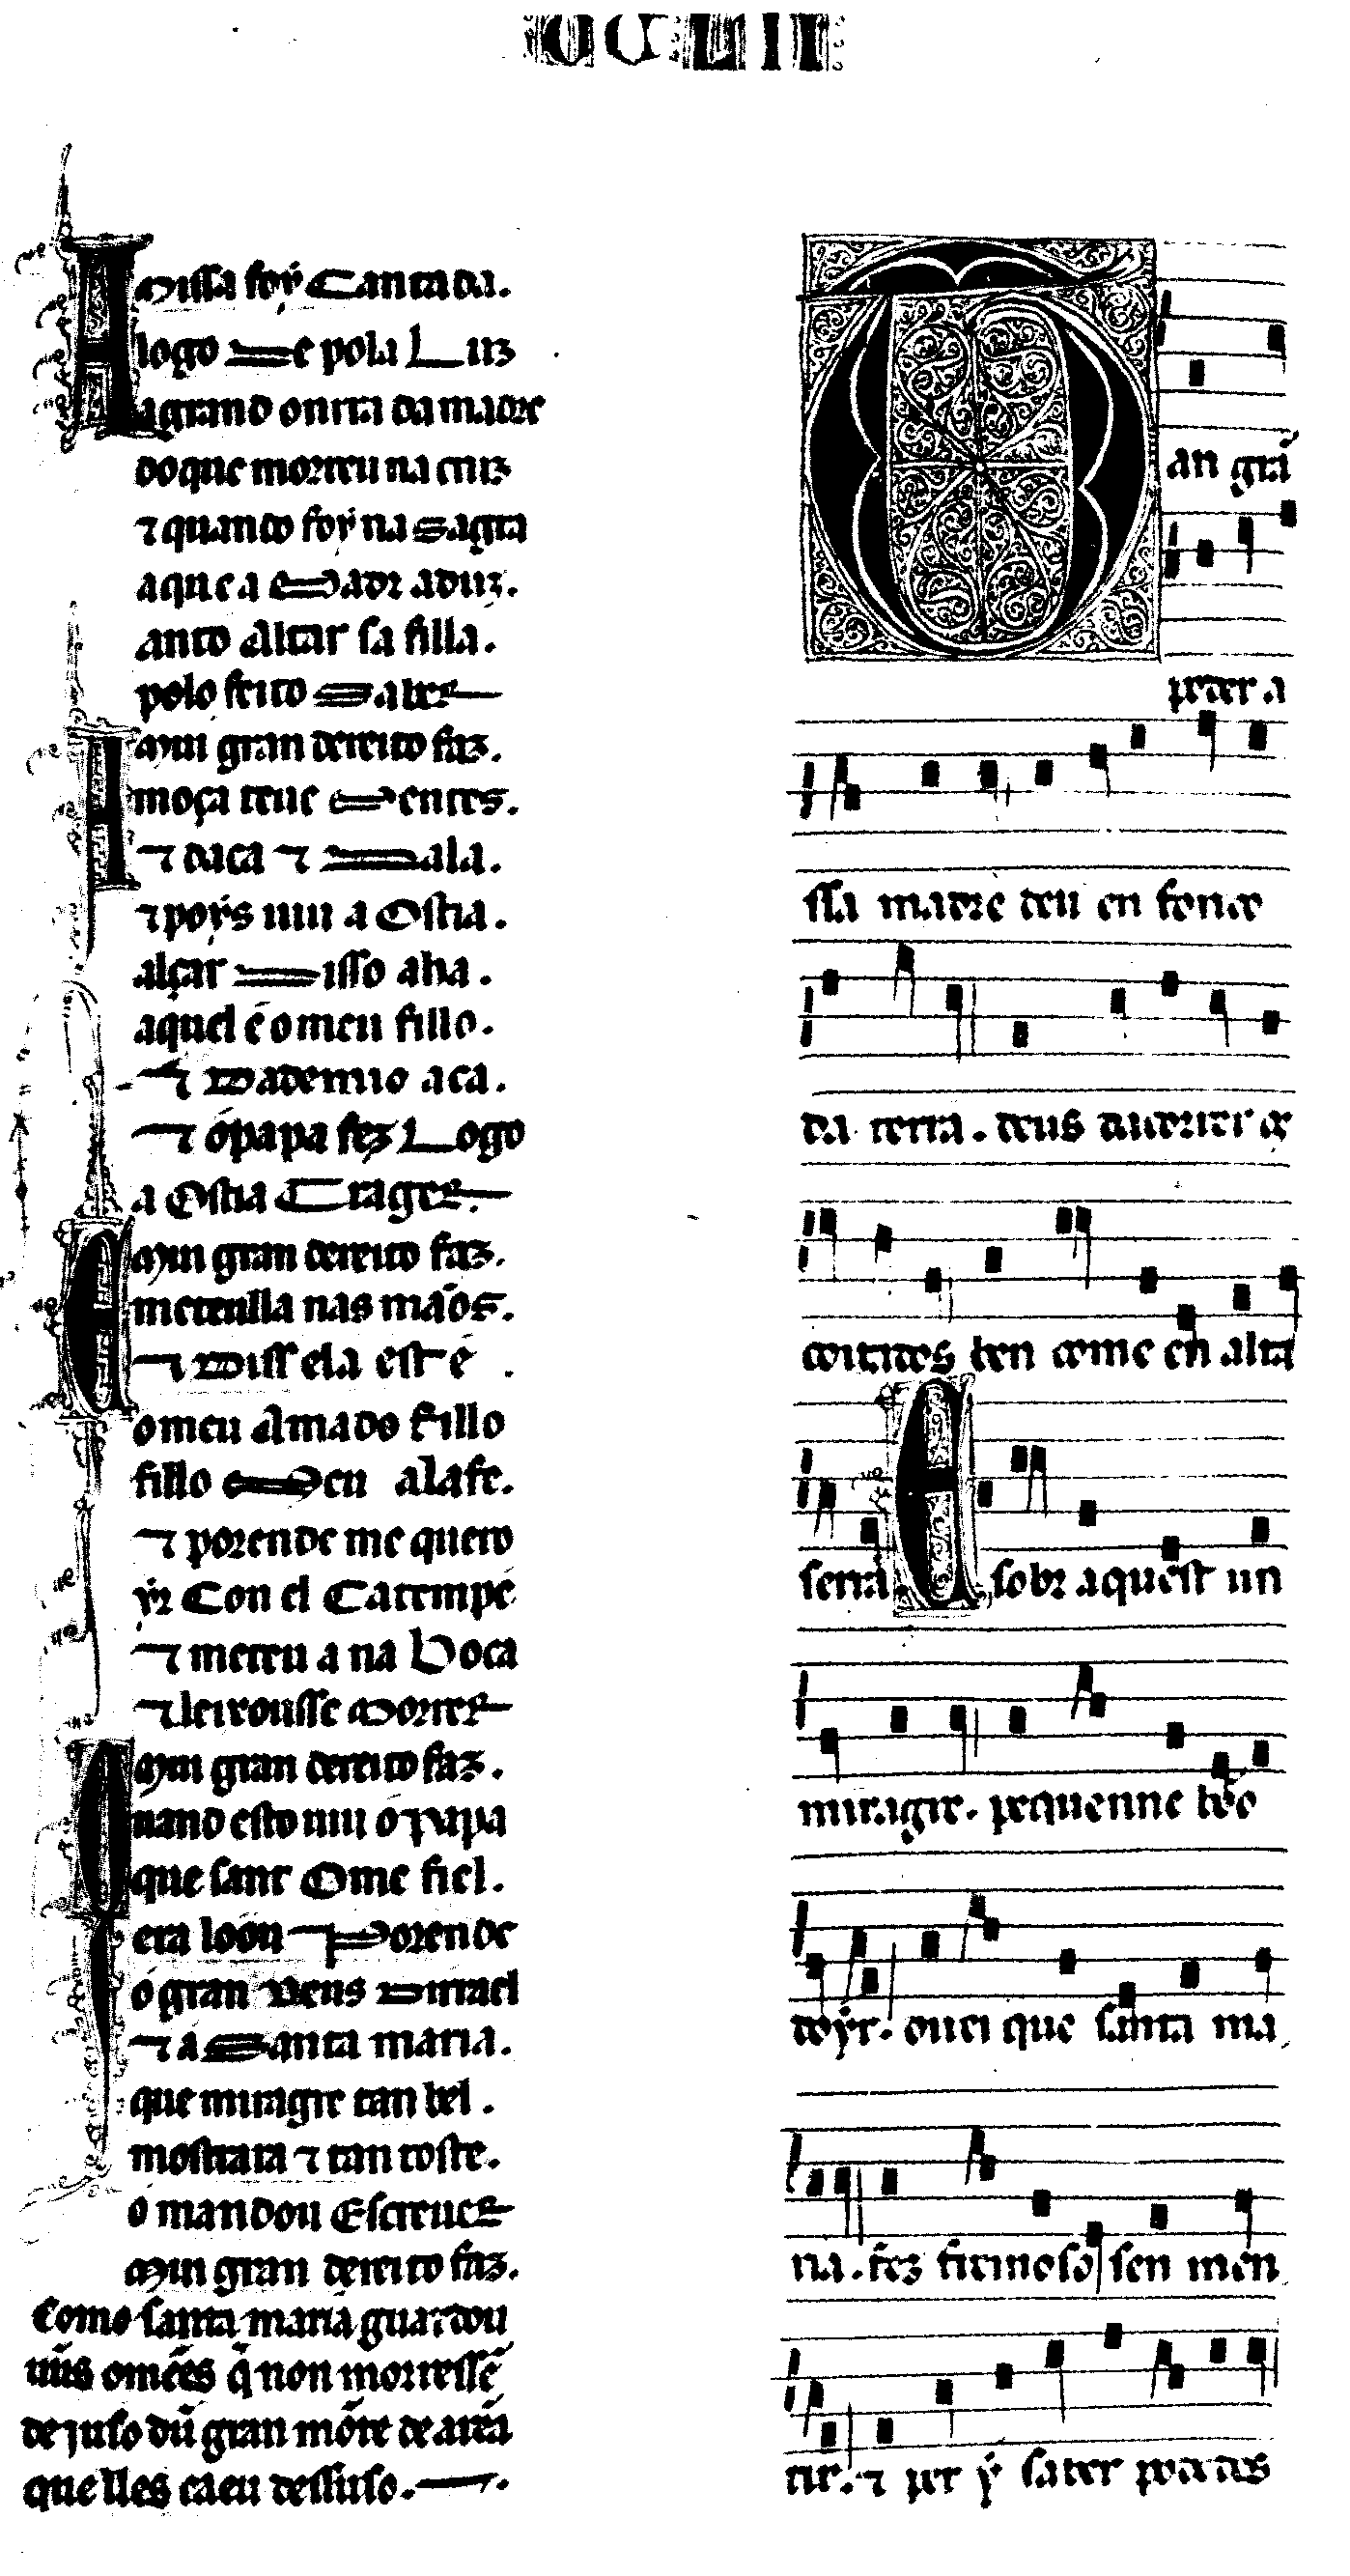 CCLII
A Missa foỹ Cantada.
logo De pola Luz
a grand onrra da madre
do que morreu na cruz
⁊ quando foỹ na Sagra
a que a Madr aduz.
anto Altar sa filla.
polo feito Saber
Mui gran dereito faz.
A moça teue Mentes.
⁊ daca ⁊ Dala.
⁊ poỹs uiu a Ostia.
alçar Disso aha.
aquel é o meu fillo.
⁊ Dademio aca.
⁊ o papa fez Logo
a Ostia Trager
Mui gran dereito faz.
E meteulla nas mãos.
⁊ Diss ela est é
o meu Amado Fillo
fillo Meu alafe.
⁊ porende me quero
ỹr Con el Catempe
⁊ meteu a na Boca
⁊ leixousse Morrer
Mui gran dereito faz.
Quand esto uiu o Papa
que sant Ome fiel.
era loou ⁊ Porende
o gran Deus Dirrael
⁊ a Santa maria.
que miragre tan bel.
mostrara ⁊ tan toste.
o mandou Escreuer
Mui gran dereito faz.
Como santa maria guardou
ũus omẽes q̃ non morressẽ
de juso dũ gran mõte de arẽa
que lles caeu dessuso.
Tan grã
poder a
ssa madre deu en fondo
da terra. deus dacorrer os
coitados ben come en alta
serra. E sobr aquest un
miragre. pequenne bõo
doỹr. ouei que santa ma
ria. fez fremoso sen men
tir. ⁊ per ỹ saber podedes